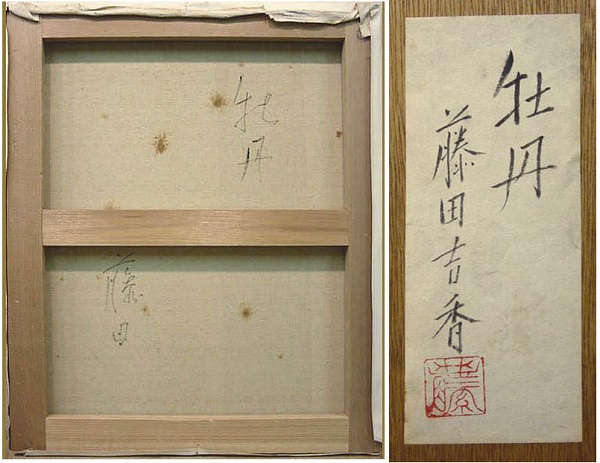 牡丹
藤田
牡丹
藤田吉香
藤